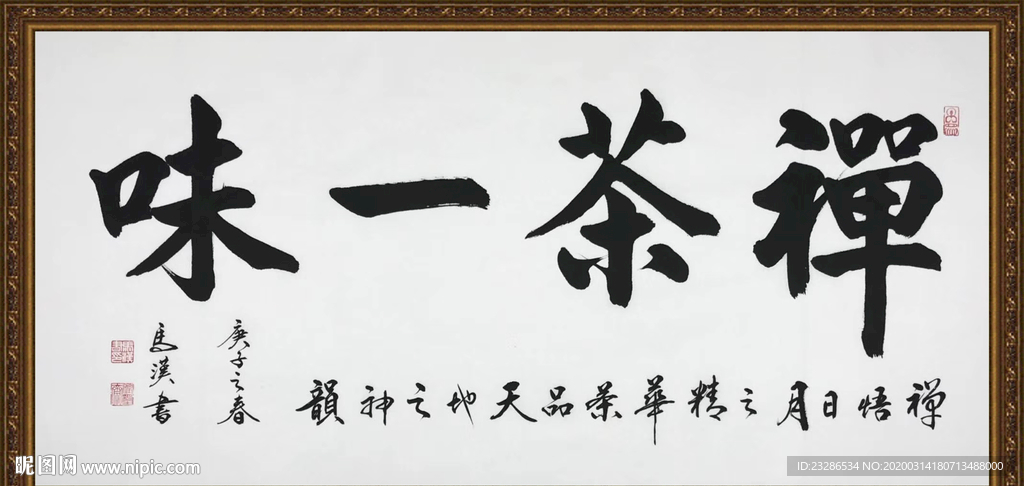 禪茶一味
禅悟日月之精華茶品天地之神韻
庚子之春
馬漢書
昵图网 www.nipic.com
ID:23286534 NO:20200314180713488000